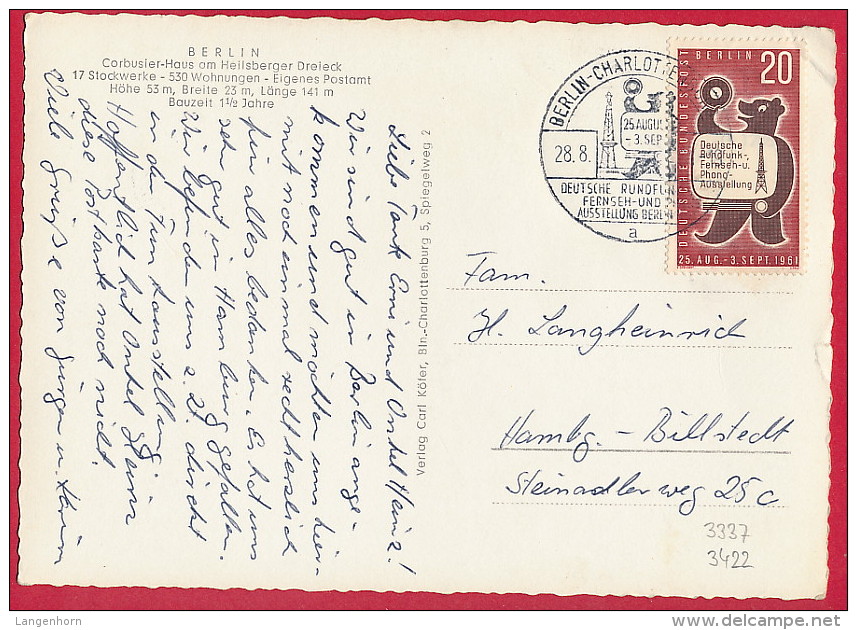 BERLIN
Corbusier-Haus am Heilsberger Dreieck
17 Stockwerke - 530 Wohnungen - Eigenes Postamt
Höhe 53 m, Breite 23 m, Länge 141 m
Bauzeit 1½ Jahre
Liebe Tante Erni und Onkel Heinz!
Wir sind gut in Berlin ange-
kommen und möchten uns hier-
mit noch einmal recht herzlich
für alles bedanken. Es hat uns
sehr gut in Hamburg gefallen.
Wir befinden uns z. Zt. direkt
in der Funkausstellung.
Hoffentlich hat Onkel Heinz
diese Postkarte noch nicht.
Viele Grüße von Jürgen u.
Verlag Carl Köfer, Bln.-Charlottenburg 5, Spiegelweg 2
BERLIN-CHARLOTTE
25 AUGUS
- 3. SEP
28.8.
DEUTSCHE RUNDFU
FERNSEH-UND
AUSSTELLUNG BERLIN
a
DEUTSCHE BUNDESPOST BERLIN
20
Deutsche
Rundfunk-,
Fernseh-u.
Phono-
Ausstellung
25. AUG.-3. SEPT. 1961
Fam.
H. Langheinrich
Hambg. - Billstedt
Steinadlerweg 25c
3337
3422
Langenhorn
delcampe.net